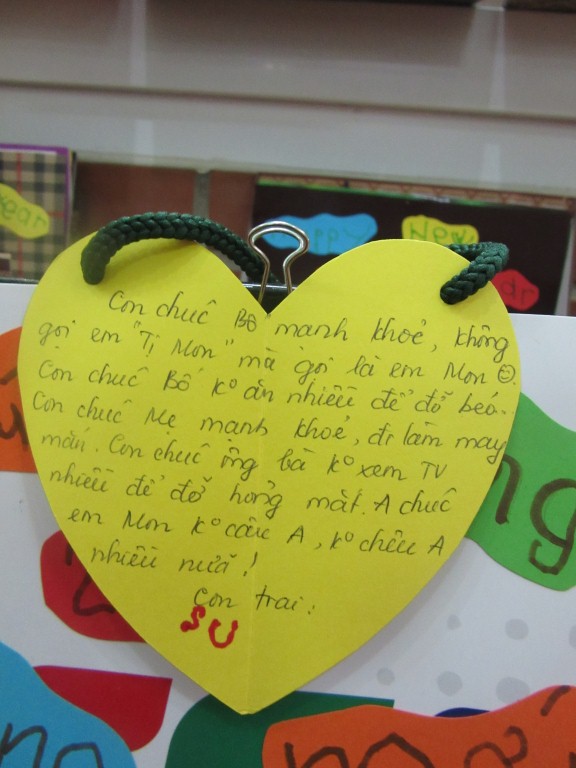 ear
ppy
New
ar
Con chuć Bố mạnh khoẻ, không
gọi em "Tị Mon" mà gọi là em Mon ☺.
Con chuć Bố kº ăn nhiều để đỡ béo.
Con chuć Mẹ mạnh khoẻ, đi làm may
mắn. Con chuć ông bà kº xem TV
nhiều để đỡ hỏng mắt. A chuć
em Mon kº cấu A, kº chêu A
nhiều nữa!
Con trai:
SU
ng